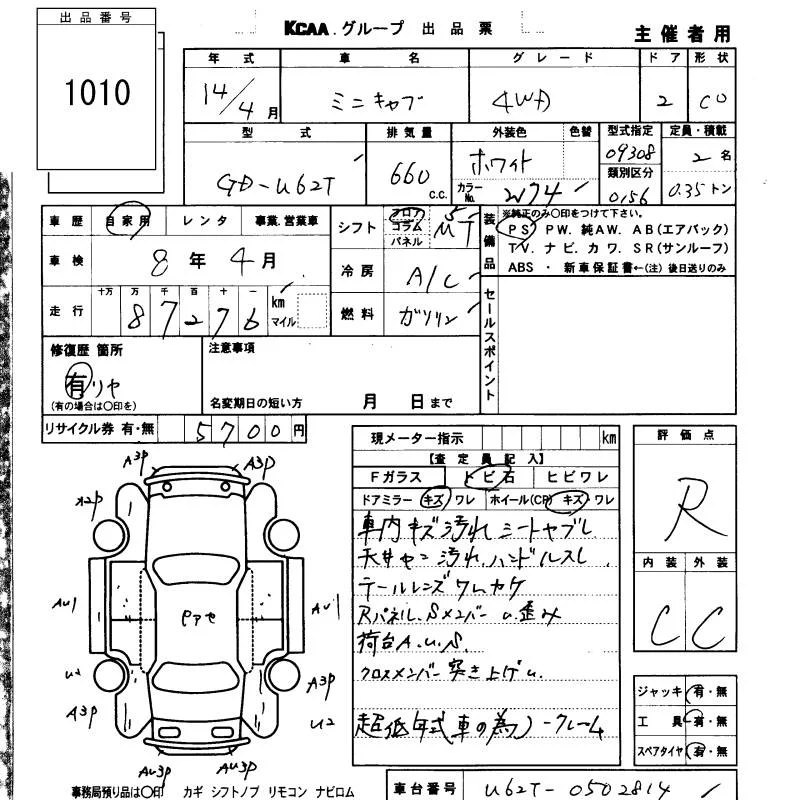 出品番号
1010
KCAA.グループ 出品票
主催者用
年式 車名 グレード ドア 形状
14/4月 ミニキャブ 4WD 2 CO
型式 排気量 外装色 色替 型式指定 定員・積載
GD-U62T 660 C.C. ホワイト 09308 2名
カラーNo. W74 類別区分 0156 0.35トン
車歴 自家用 レンタ 事業.営業車
シフト フロア コラム パネル 5 MT
装備品 ※純正のみ〇印をつけて下さい。
PS. PW. 純AW. AB(エアバック)
TV. ナビ. カワ. SR(サンルーフ)
ABS ・ 新車保証書←(注) 後日送りのみ
車検 8年4月
冷房 A/C
走行 十万 万 千 百 十 一
87276 km マイル
燃料 ガソリン
セールスポイント
修復歴 箇所 注意事項
有 リヤ
(有の場合は〇印を)
名変期日の短い方 月 日まで
リサイクル券 有・無 5700円
現メーター指示 km
【査定員記入】
Fガラス トビ石 ヒビワレ
ドアミラー キズ ワレ ホイール(CP) キズ・ワレ
車内キズ汚れ シートヤブレ
天井ヤニ汚れ ハンドルスレ
テールレンズワレカケ
Rパネル.Sメンバーu.歪み
荷台A.U.S.
クロスメンバー突き上げu.
超低年式車の為ノークレーム
評価点
R
内装 外装
C C
ジャッキ 有・無
工具 有・無
スペアタイヤ 有・無
A3P A3P
A2P
AU1 AU1
U2 A3P
A3P U2
AU3P AU3P
事務局預り品は〇印 カギ シフトノブ リモコン ナビロム
車台番号 U62T-0502814